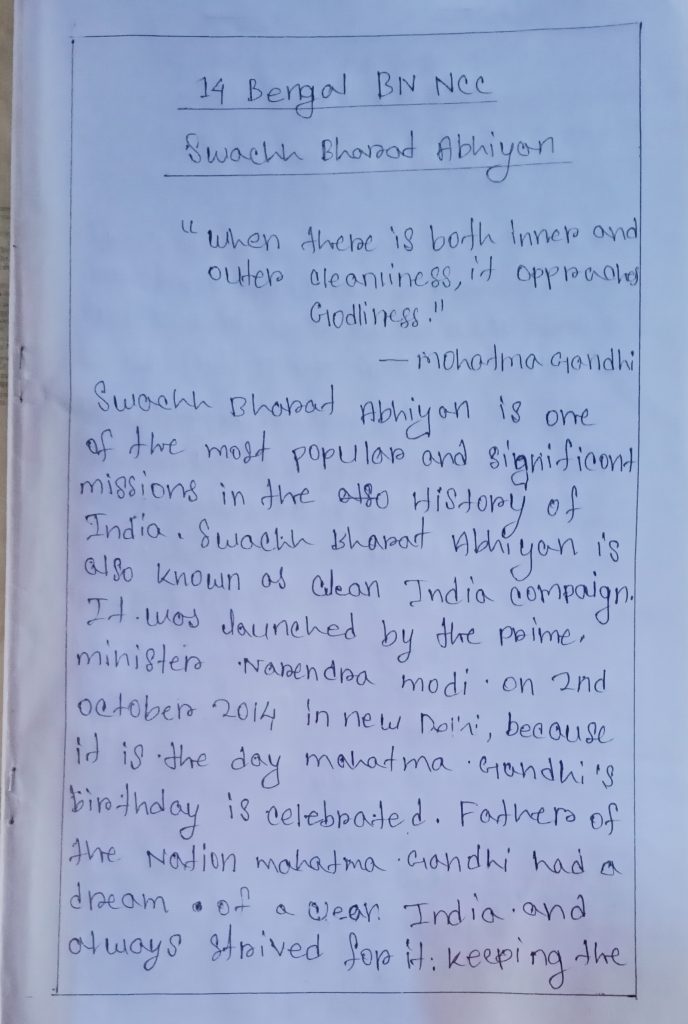 14 Bengal BN NCC
Swachh Bharat Abhiyan
"When there is both inner and
outer cleanliness, it approaches
Godliness."
— Mahatma Gandhi
Swachh Bharat Abhiyan is one
of the most popular and significant
missions in the History of
India. Swachh Bharat Abhiyan is
also known as Clean India Campaign.
It was launched by the prime,
minister Narendra modi on 2nd
october 2014 in new Delhi, because
it is the day mahatma Gandhi's
birthday is celebrated. Father of
the Nation mahatma Gandhi had a
dream of a clean India and
always strived for it. keeping the